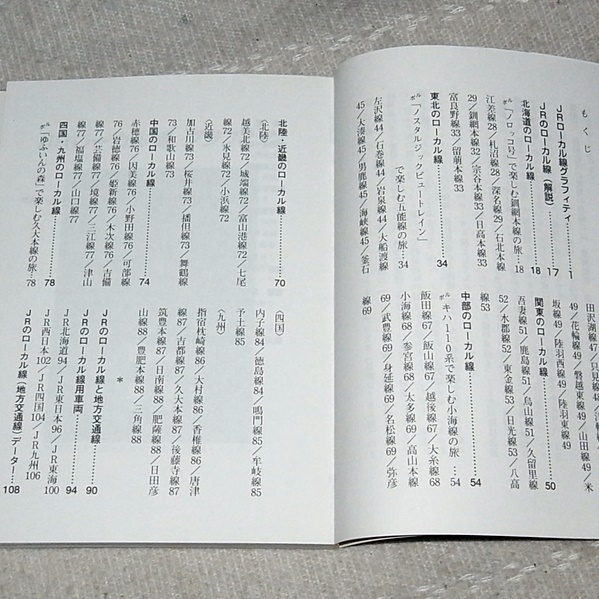 もくじ
JRローカル線グラフィティ……1
JRのローカル線（解説）……17
北海道のローカル線……18
ルポ「ノロッコ号」で楽しむ釧網本線の旅…18
江差線28／札沼線28／深名線29／石北本線
29／釧網本線29／宗谷本線33／日高本線33
富良野線33／留萌本線33
東北のローカル線……34
ルポ「ノスタルジックビュートレイン」
で楽しむ五能線の旅…34
左沢線44／石巻線44／岩泉線44／大船渡線
45／大湊線45／男鹿線45／海峡線45／釜石
田沢湖線47／只見線48／
49／花輪線49／磐越東線49／山田線49／米
坂線49／陸羽西線49／陸羽東線49
関東のローカル線……50
吾妻線51／鹿島線51／烏山線51／久留里線
52／水郡線52／東金線53／日光線53／八高
線53
中部のローカル線……54
ルポ キハ110系で楽しむ小海線の旅…54
飯田線67／飯山線67／越後線67／大糸線68
小海線68／参宮線68／太多線68／高山本線
69／武豊線69／身延線69／名松線69／弥彦
線69
北陸・近畿のローカル線……70
〈北陸〉
越美北線72／城端線72／富山港線72／七尾
線72／氷見線72／小浜線72
〈近畿〉
加古川線73／桜井線73／播但線73／舞鶴線
73／和歌山線73
中国のローカル線……74
赤穂線76／因美線76／小野田線76／可部線
76／岩徳線76／姫新線76／木次線76／吉備
線77／芸備線77／境線77／三江線77／津山
線77／福塩線77／山口線77
四国・九州のローカル線……78
ルポ「ゆふいんの森」で楽しむ久大本線の旅…78
〈四国〉
内子線84／徳島線84／鳴門線85／牟岐線85
予土線85
〈九州〉
指宿枕崎線86／大村線86／香椎線86／唐津
線87／吉都線87／久大本線87／後藤寺線87
筑豊本線87／日南線88／肥薩線88／日田彦
山線88／豊肥本線88／三角線88
＊
JRのローカル線と地方交通線……90
JRのローカル線用車両……94
JR北海道94／JR東日本96／JR東海100
JR西日本102／JR四国104／JR九州106
JRのローカル線（地方交通線）データー…108